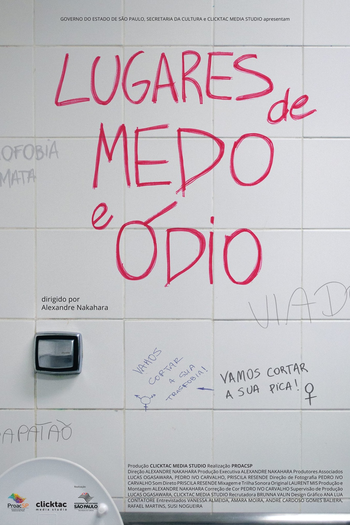 GOVERNO DO ESTADO DE SÃO PAULO, SECRETARIA DA CULTURA e CLICKTAC MEDIA STUDIO apresentam
LUGARES
de
MEDO
e
ÓDIO
OFOBIA
MATA
dirigido por
Alexandre Nakahara
VIAD
VAMOS
CORTAR
A SUA
TRANSFOBIA!
VAMOS CORTAR
A SUA PICA! ♀
APATÃO
Produção CLICKTAC MEDIA STUDIO Realização PROACSP
Direção ALEXANDRE NAKAHARA Produção Executiva ALEXANDRE NAKAHARA Produtores Associados
LUCAS OGASAWARA, PEDRO IVO CARVALHO, PRISCILA RESENDE Direção de Fotografia PEDRO IVO
CARVALHO Som Direto PRISCILA RESENDE Mixagem e Trilha Sonora Original LAURENT MIS Produção e
Montagem ALEXANDRE NAKAHARA Correção de Cor PEDRO IVO CARVALHO Supervisão de Produção
LUCAS OGASAWARA, CLICKTAC MEDIA STUDIO Recrutadora BRUNNA VALIN Design Gráfico ANA LUA
CONTATORE Entrevistados VANESSA ALMEIDA, AMARA MOIRA, ANDRÉ CARDOSO GOMES BALIERA,
RAFAEL MARTINS, SUSI NOGUEIRA
ProacSP
clicktac
media studio
SÃO PAULO